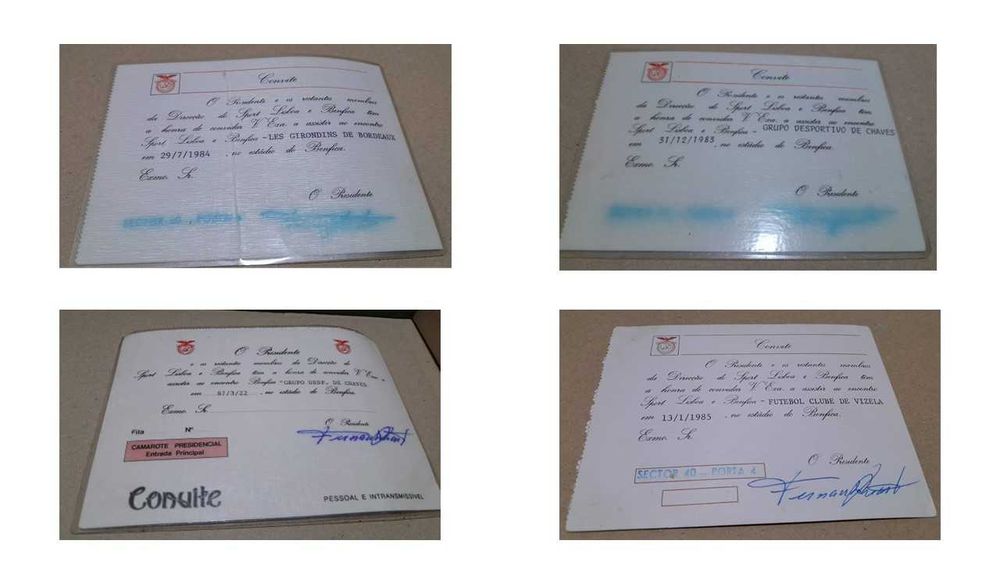 Convite
O Presidente e os restantes membros
da Direcção do Sport Lisboa e Benfica têm
a honra de convidar V. Exa. a assistir ao encontro
Sport Lisboa e Benfica - LES GIRONDINS DE BORDEAUX
em 29/7/1984, no estádio do Benfica.
Exmo. Sr.
O Presidente
SECTOR 40 - PORTA 4
Convite
O Presidente e os restantes membros
da Direcção do Sport Lisboa e Benfica têm
a honra de convidar V. Exa. a assistir ao encontro
Sport Lisboa e Benfica - GRUPO DESPORTIVO DE CHAVES
em 31/12/1985, no estádio do Benfica.
Exmo. Sr.
O Presidente
O Presidente
e os restantes membros da Direcção do
Sport Lisboa e Benfica têm a honra de convidar V. Exa. a
assistir ao encontro Benfica "GRUPO DESP. DE CHAVES
em 87/3/22, no estádio do Benfica.
Exmo. Sr.
Fila Nº
O Presidente
CAMAROTE PRESIDENCIAL
Entrada Principal
Convite
PESSOAL E INTRANSMISSÍVEL
Convite
O Presidente e os restantes membros
da Direcção do Sport Lisboa e Benfica têm
a honra de convidar V. Exa. a assistir ao encontro
Sport Lisboa e Benfica - FUTEBOL CLUBE DE VIZELA
em 13/1/1985, no estádio do Benfica.
Exmo. Sr.
O Presidente
SECTOR 40 - PORTA 4